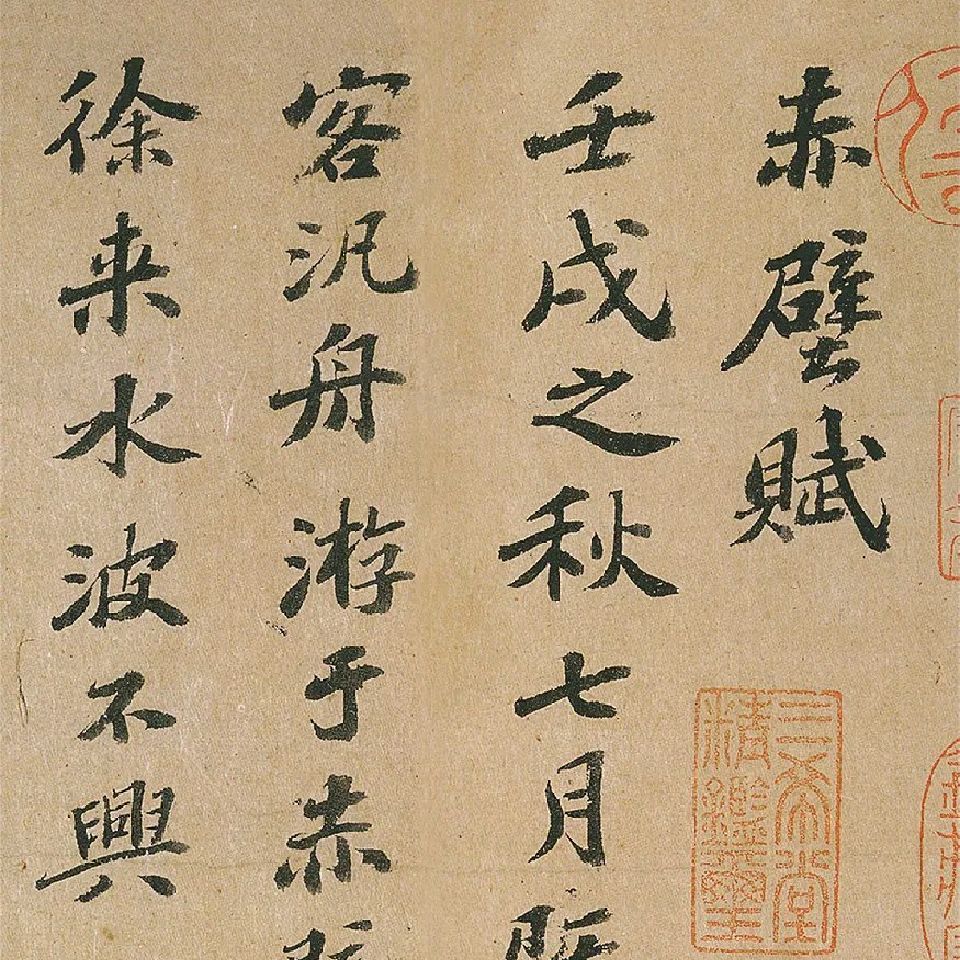 赤壁賦
壬戌之秋七月既
客汎舟游于赤
徐来水波不興
三希堂
精鑑璽